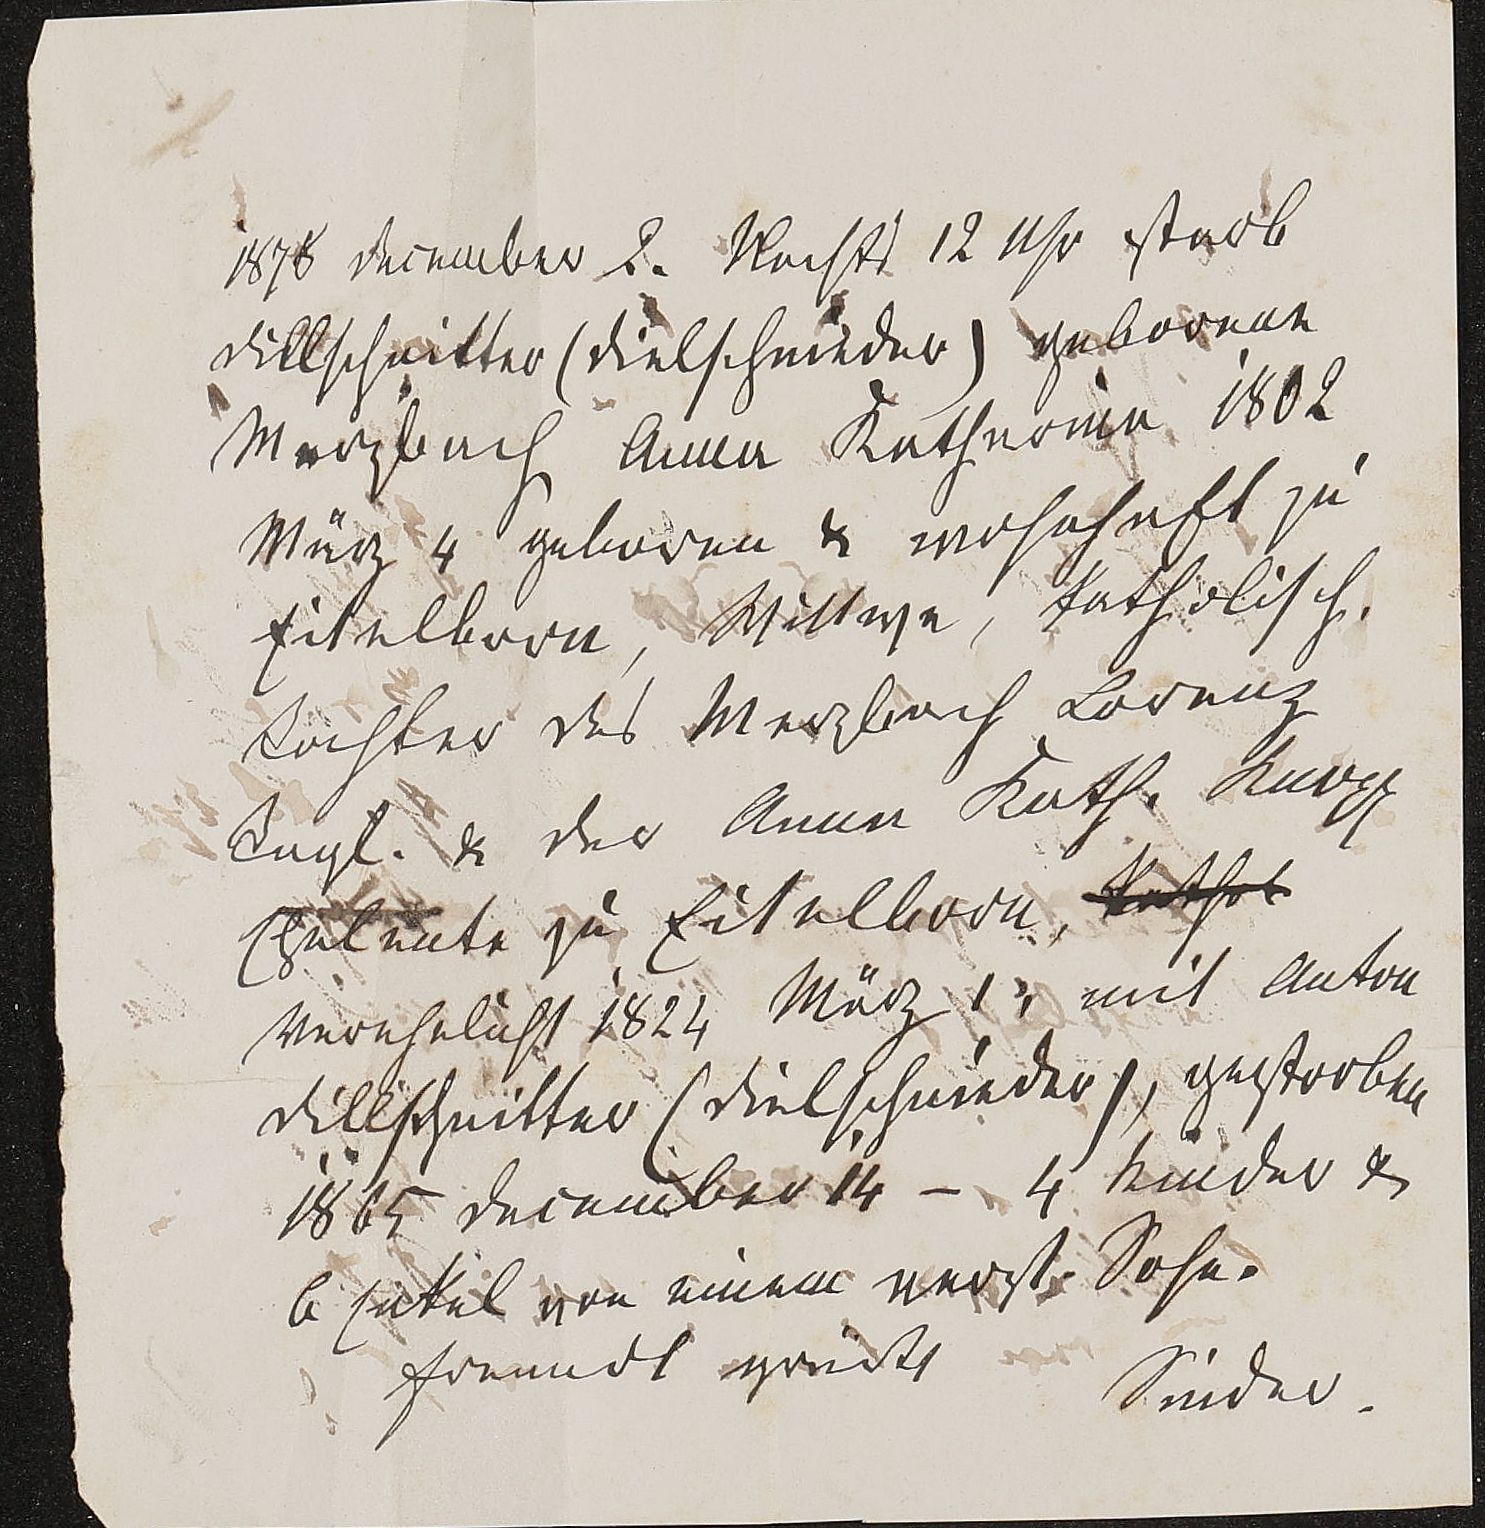 1878 December 2. Nachts 12 Uhr starb
Dillschnitter (Dielschnieder) geborene
Merzbach Anna Katharina 1802
März 4 geboren & wohnhaft zu
Eitelborn, Wittwe, katholisch.
Tochter des Merzbach Lorenz
Tagl. & der Anna Kath. Knopp
Eheleute zu Eitelborn, Kathol
verehelicht 1824 März mit Anton
Dillschnitter (Dielschnieder), gestorben
1865 December 14 – 4 Kinder &
6 Enkel von einem verst. Sohn.
freundl grüßt Sinder.